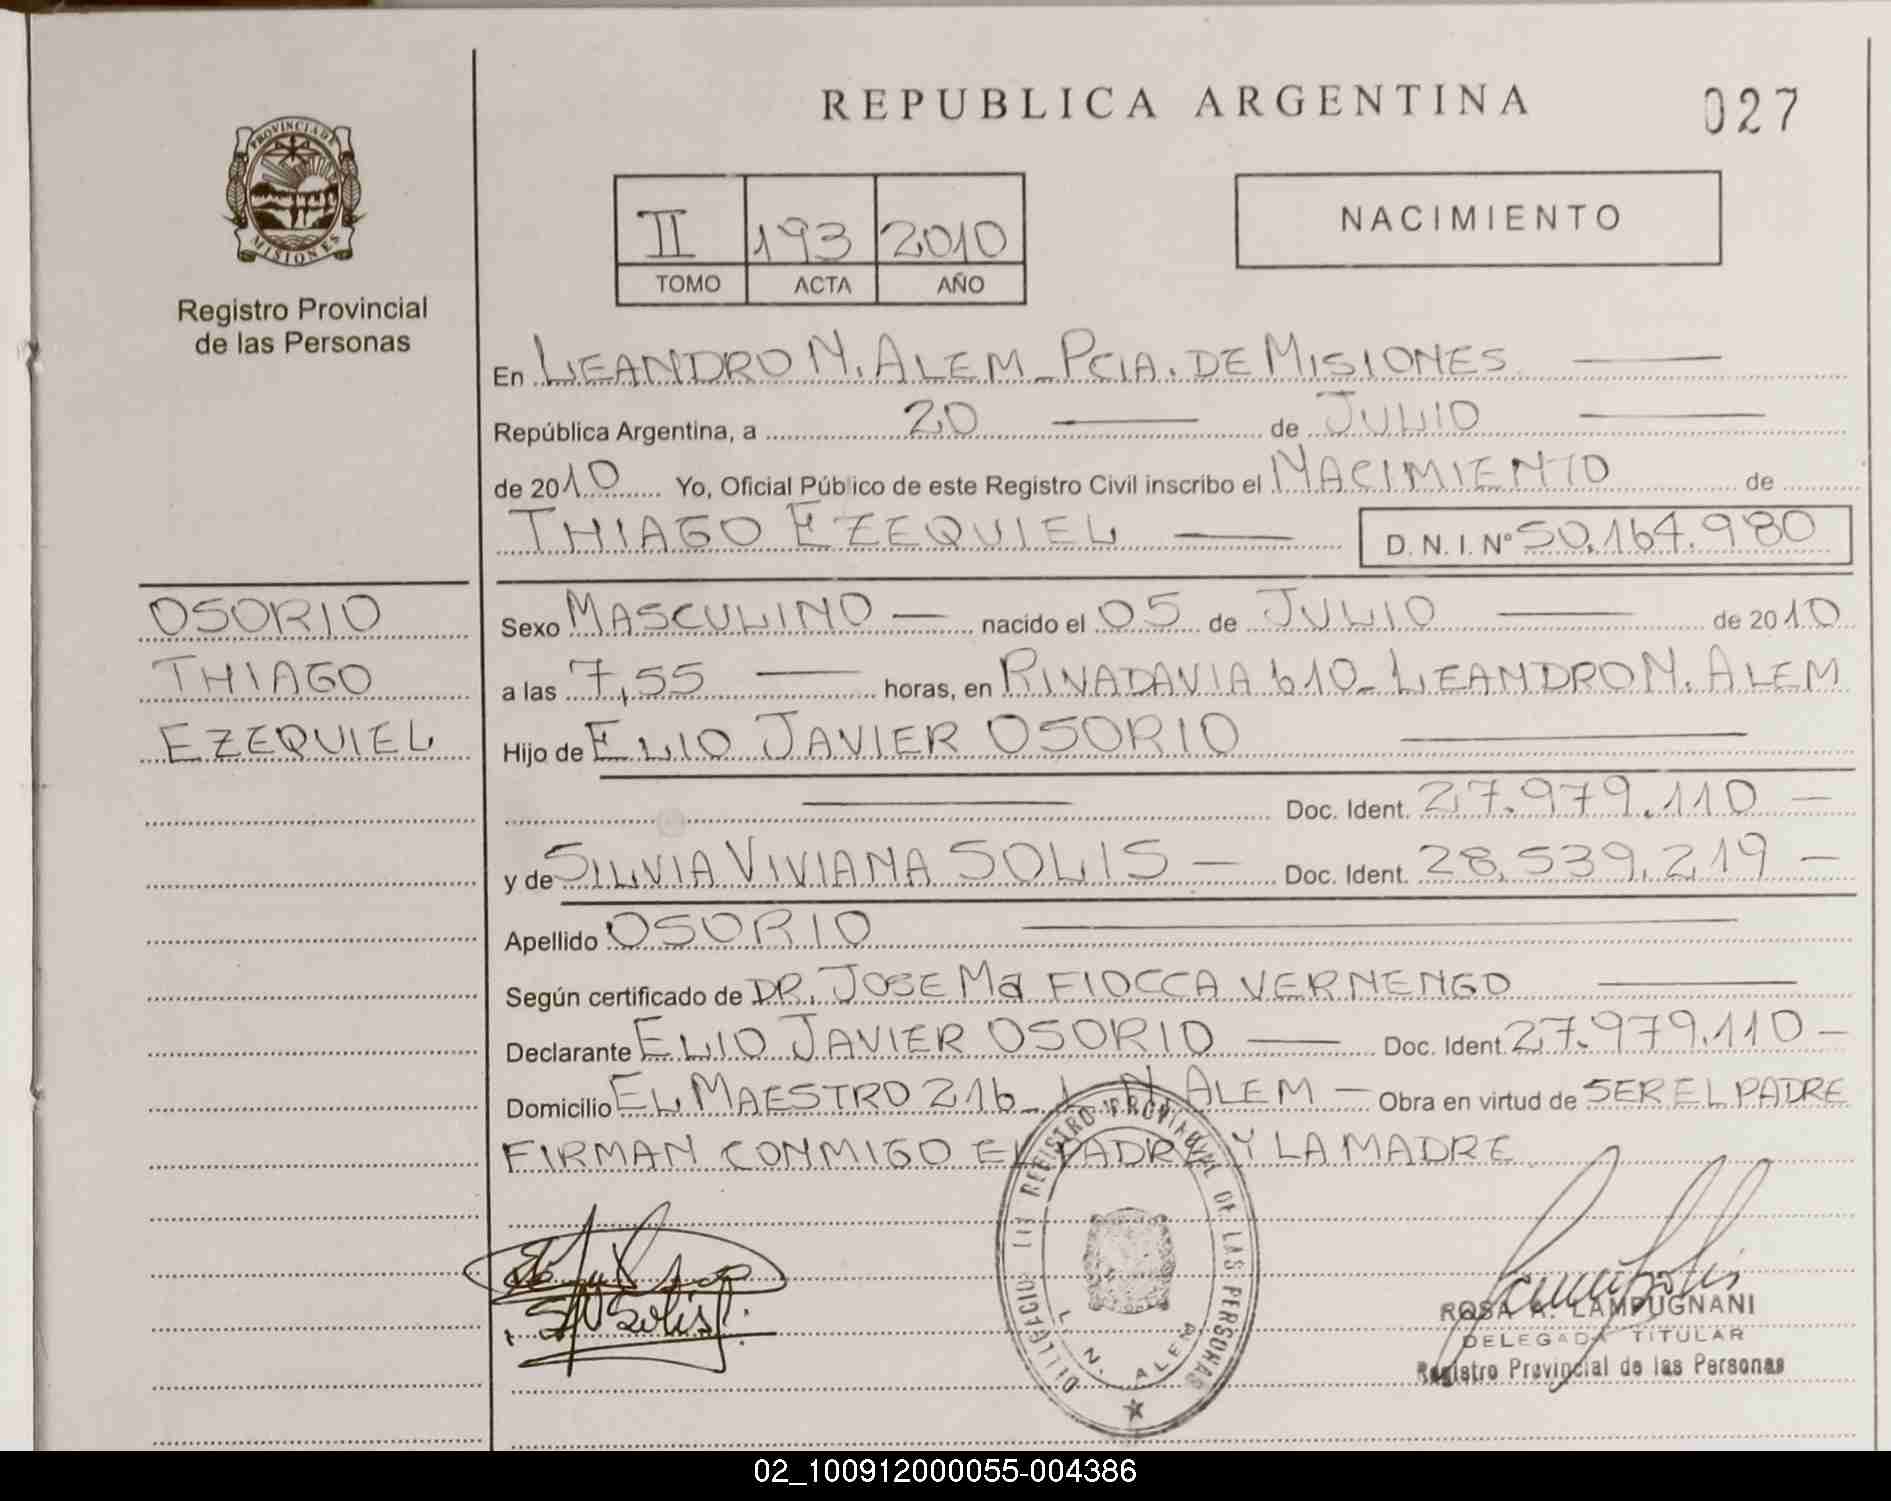 REPUBLICA ARGENTINA
027
PROVINCIA DE
MISIONES
Registro Provincial
de las Personas
II 193 2010
TOMO ACTA AÑO
NACIMIENTO
En LEANDRO N. ALEM - PCIA. DE MISIONES
República Argentina, a 20 de JULIO
de 2010 Yo, Oficial Público de este Registro Civil inscribo el NACIMIENTO de
THIAGO EZEQUIEL D. N. I. Nº 50.164.980
OSORIO
THIAGO
EZEQUIEL
Sexo MASCULINO nacido el 05 de JULIO de 2010
a las 7,55 horas, en RIVADAVIA 610 - LEANDRO N. ALEM
Hijo de ELIO JAVIER OSORIO
Doc. Ident. 27.979.110
y de SILVIA VIVIANA SOLIS Doc. Ident. 28.539.219
Apellido OSORIO
Según certificado de DR. JOSE Ma FIOCCA VERNENGO
Declarante ELIO JAVIER OSORIO Doc. Ident. 27.979.110
Domicilio EL MAESTRO 216 - L. N. ALEM Obra en virtud de SER EL PADRE
FIRMAN CONMIGO EL PADRE Y LA MADRE
REGISTRO PROVINCIAL DE LAS PERSONAS
L. N. ALEM
Solis
ROSA A. LAMPUGNANI
DELEGADA TITULAR
Registro Provincial de las Personas
02_100912000055-004386